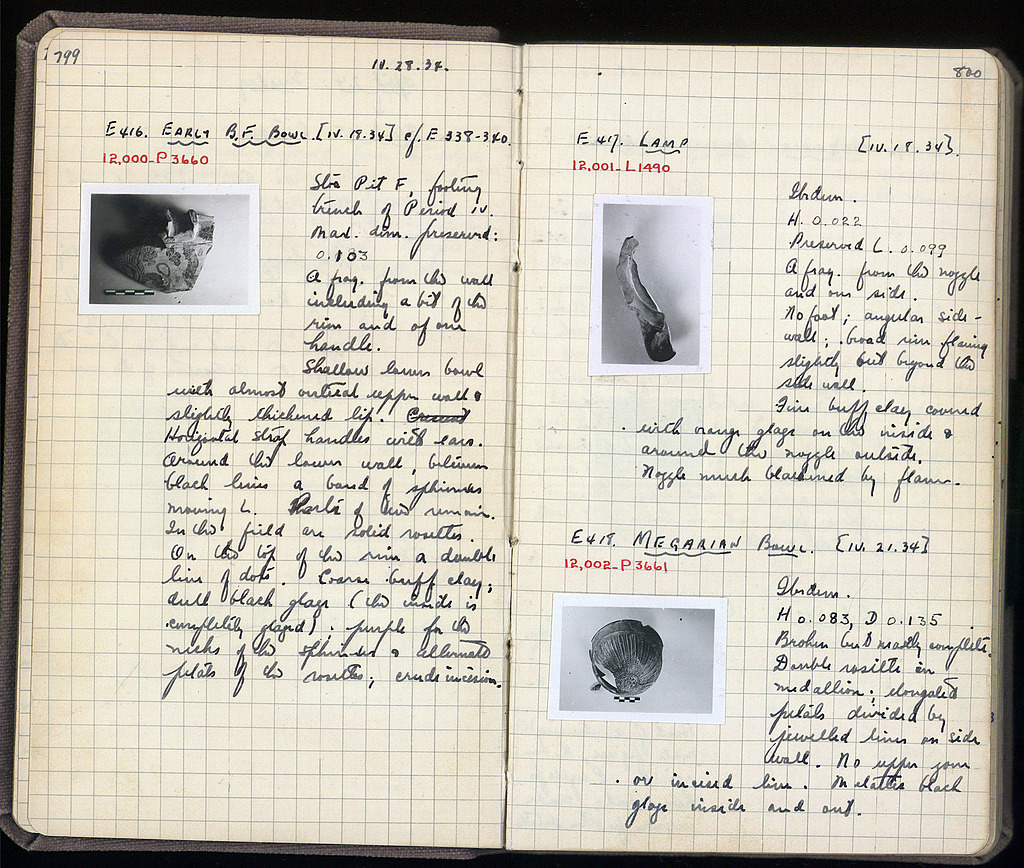 799
IV.28.34.
E 416. EARLY B.F. BOWL. [IV.18.34] cf. E 338-340.
12,000-P3660
Stoa Pit F, footing
trench of Period IV.
Max. dim. preserved:
0.103
A frag. from the wall
including a bit of the
rim and of one
handle.
Shallow lower bowl
with almost vertical upper wall &
slightly thickened lip.
Horizontal strap handles with ears.
Around the lower wall, between
black lines a band of sphinxes
moving L. Parts of two remain.
In the field are solid rosettes.
On the top of the rim a double
line of dots. Coarse buff clay;
dull black glaze (the inside is
completely glazed). purple for the
necks of the sphinxes & alternate
petals of the rosettes; crude incision.
800
E 417. LAMP [IV.18.34].
12,001-L1490
Ibidem.
H. 0.022
Preserved L. 0.099
A frag. from the nozzle
and one side.
No foot; angular side-
wall; broad rim flaring
slightly out beyond the
side wall.
Fine buff clay covered
with orange glaze on the inside &
around the nozzle outside.
Nozzle much blackened by flame.
E 418. MEGARIAN BOWL. [IV.21.34]
12,002-P3661
Ibidem.
H 0.083, D 0.135
Broken but mostly complete.
Double rosette on
medallion; elongated
petals divided by
jewelled lines on side
wall. No upper zone
or incised line. Metallic black
glaze inside and out.